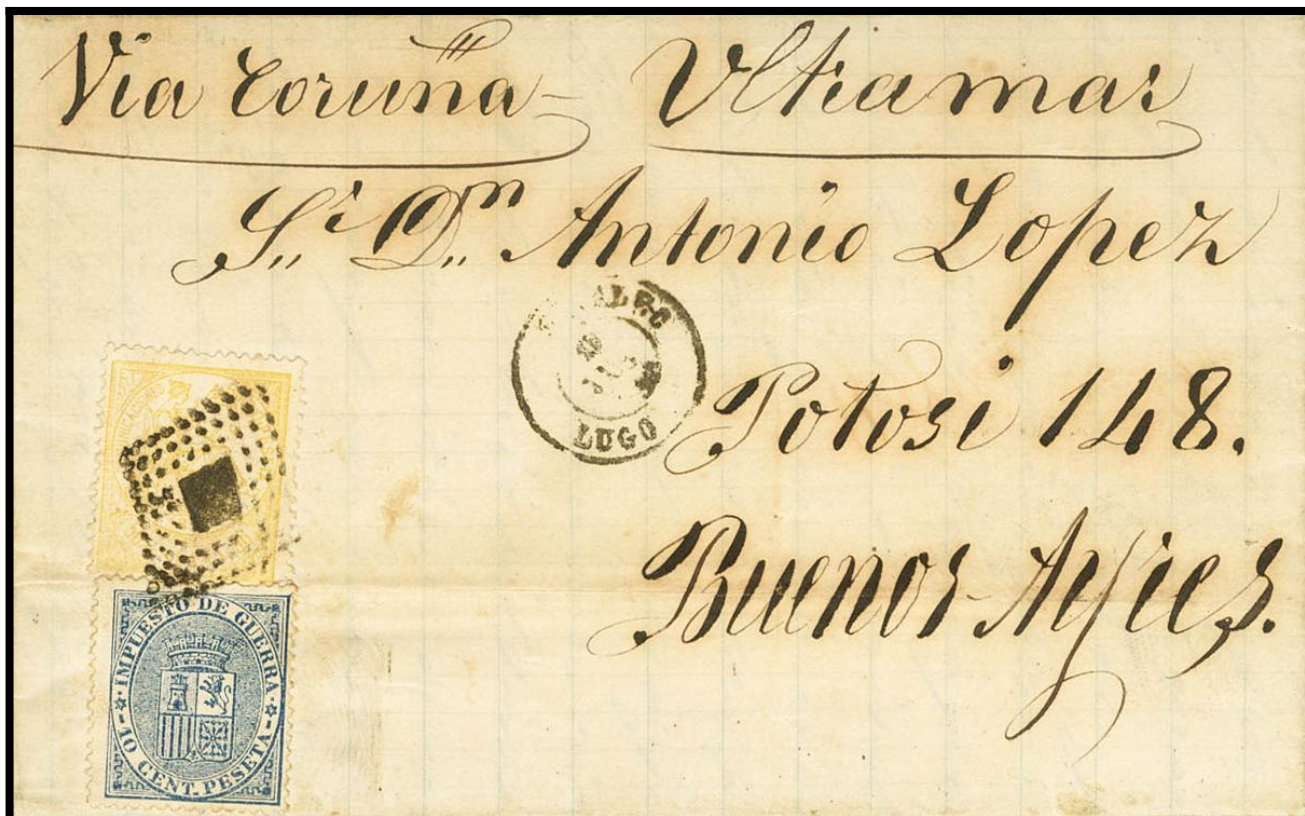 Via Coruña - Ultramar
Sr. Dn. Antonio Lopez
Potosi 148.
Buenos Ayres.
LUGO
IMPUESTO DE GUERRA
10 CENT. PESETA